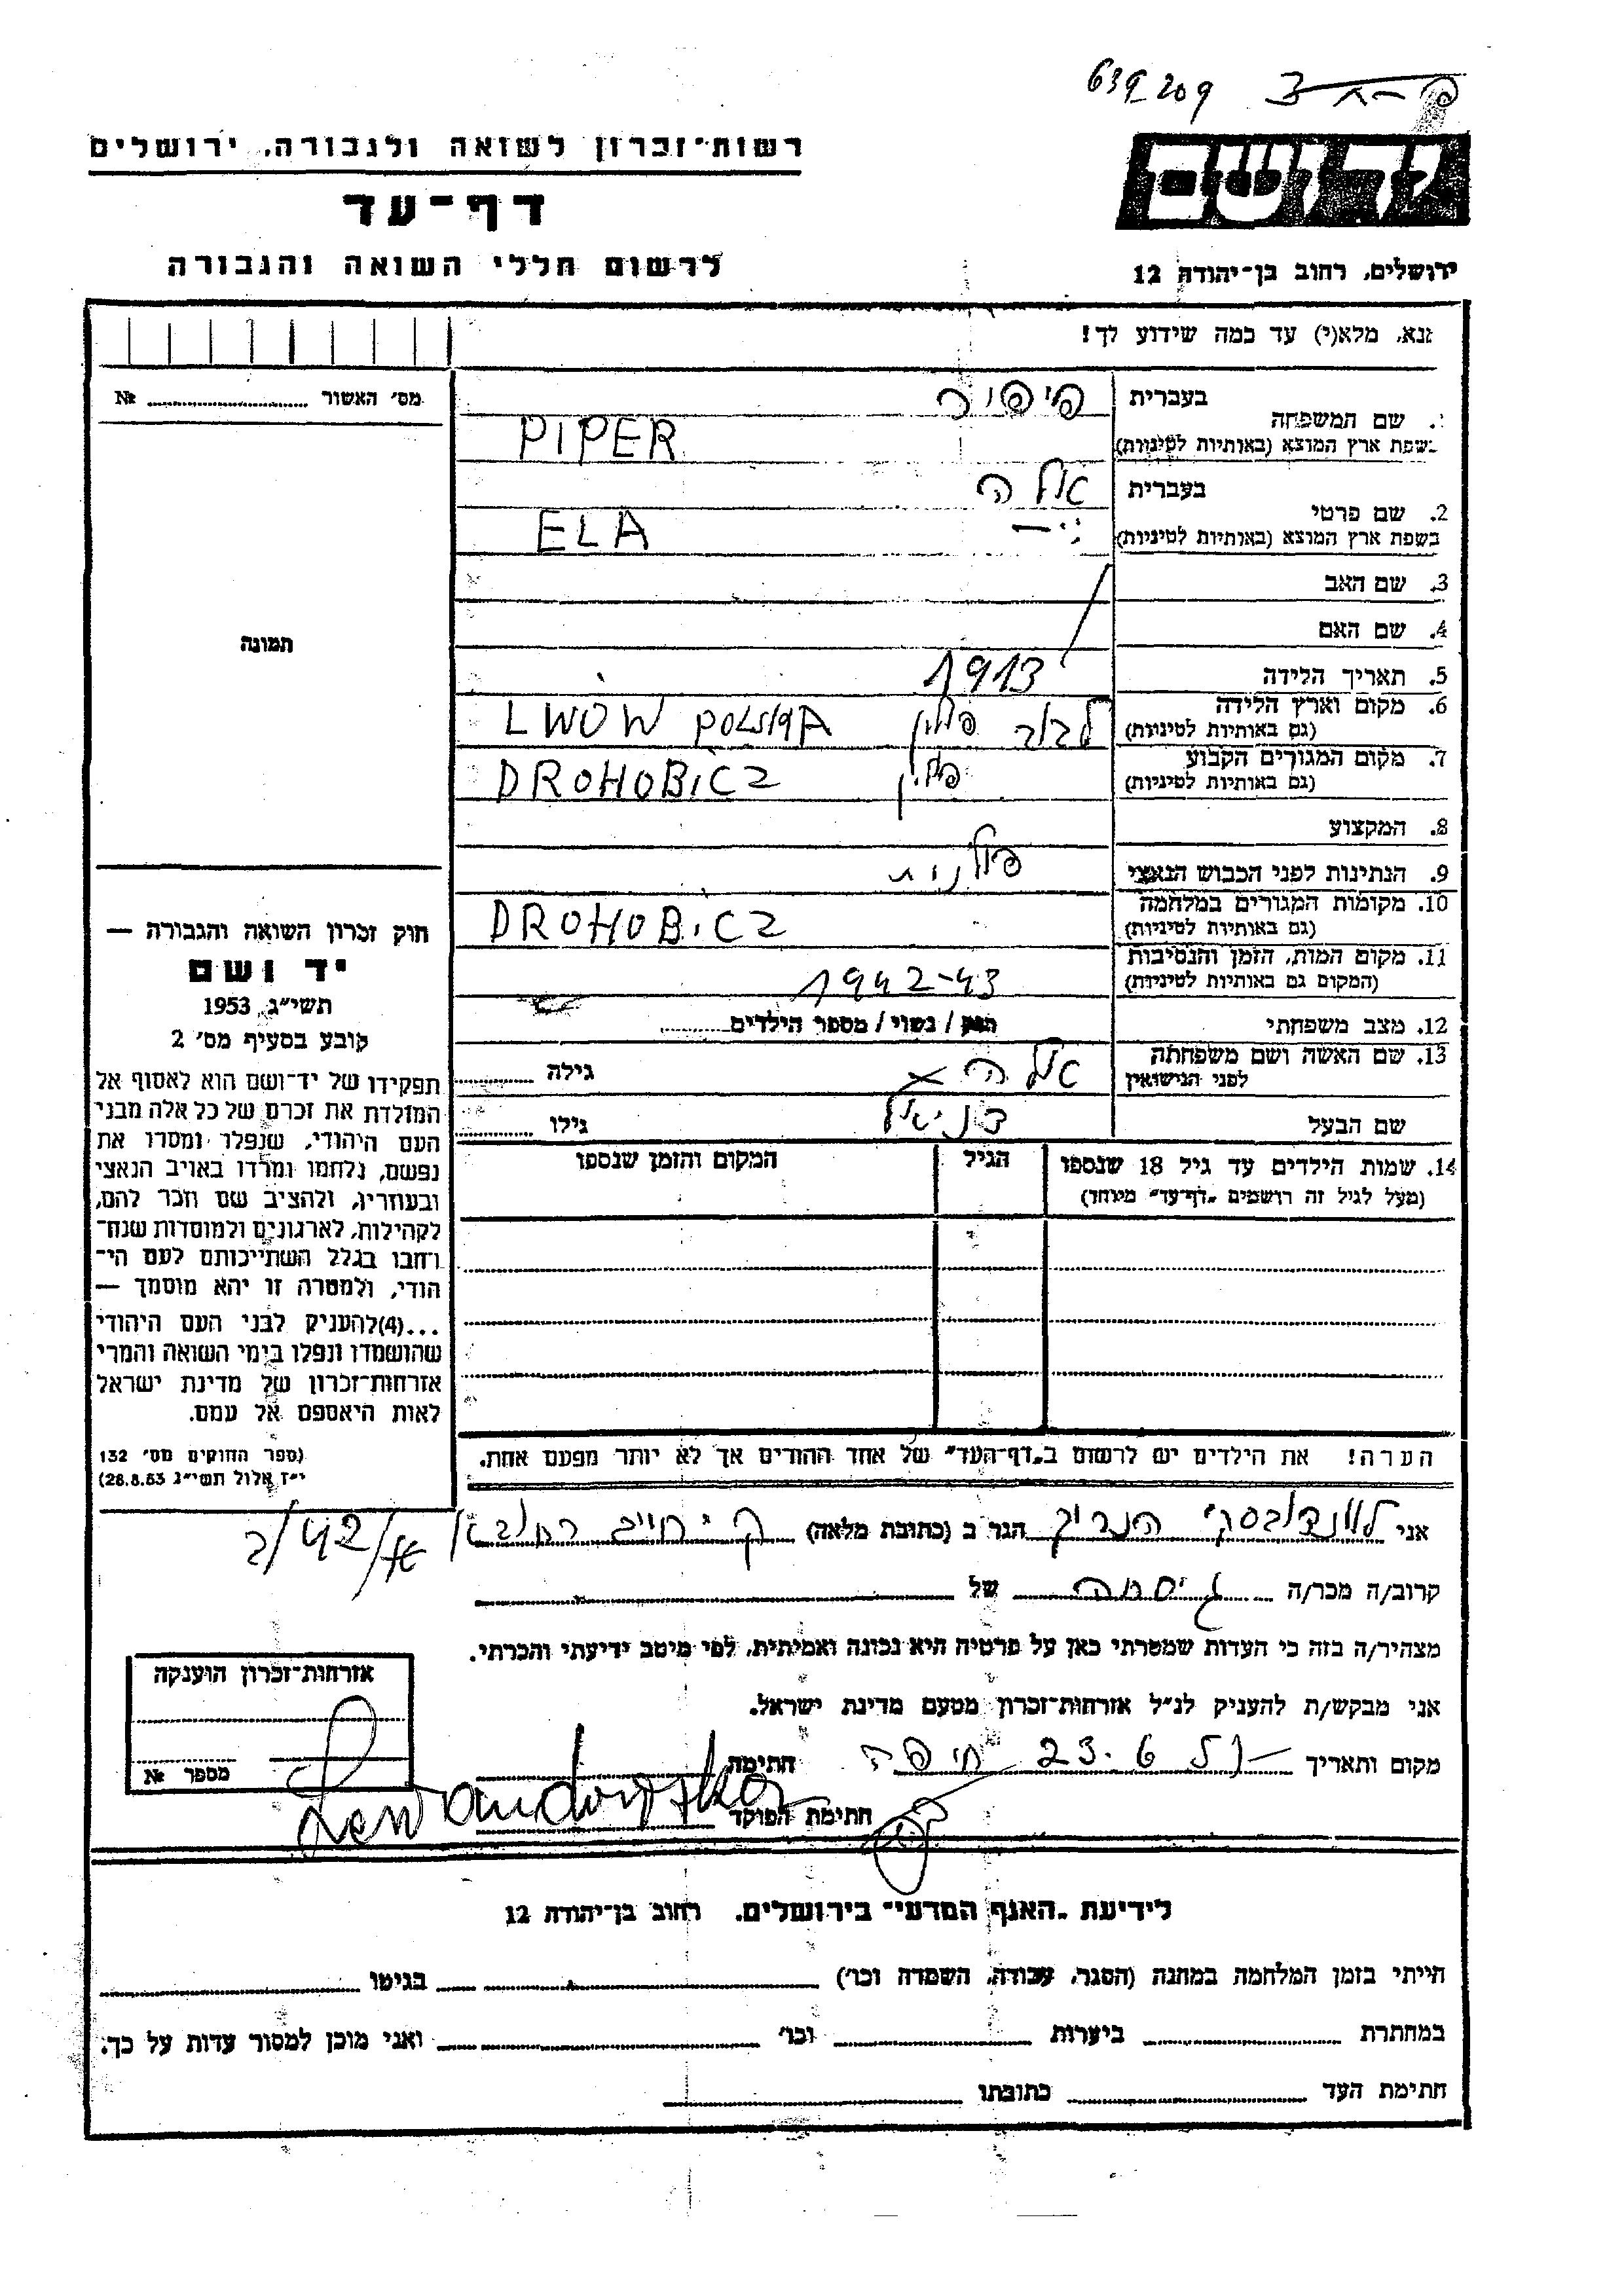 639-209
רשות-זכרון לשואה ולגבורה, ירושלים
דף-עד
לרשום חללי השואה והגבורה
ידושם
ירושלים, רחוב בן-יהודה 12
נא, מלא(י) עד כמה שידוע לך!
מס׳ האשור № ........
בעברית פיפר
1. שם המשפחה
בשפת ארץ המוצא (באותיות לטיניות) PIPER
בעברית אלה
2. שם פרטי
בשפת ארץ המוצא (באותיות לטיניות) ELA
3. שם האב
4. שם האם
תמונה
5. תאריך הלידה 1913
6. מקום וארץ הלידה לבוב פולין LWOW POLSKA
(גם באותיות לטיניות)
7. מקום המגורים הקבוע פולין DROHOBICZ
(גם באותיות לטיניות)
8. המקצוע
9. הנתינות לפני הכבוש הנאצי פולנית
10. מקומות המגורים במלחמה DROHOBICZ
(גם באותיות לטיניות)
11. מקום המות, הזמן והנסיבות 1942-43
(המקום גם באותיות לטיניות)
12. מצב משפחתי רווק / נשוי / מספר הילדים........
13. שם האשה ושם משפחתה אלה גילה ........
לפני הנישואין
שם הבעל דניאל גילו ........
14. שמות הילדים עד גיל 18 שנספו הגיל המקום והזמן שנספו
(מעל לגיל זה רושמים "דף-עד" מיוחד)
חוק זכרון השואה והגבורה —
יד ושם
תשי״ג 1953
קובע בסעיף מס׳ 2
תפקידו של יד-ושם הוא לאסוף אל
המולדת את זכרם של כל אלה מבני
העם היהודי, שנפלו ומסרו את
נפשם, נלחמו ומרדו באויב הנאצי
ובעוזריו, ולהציב שם וזכר להם,
לקהילות, לארגונים ולמוסדות שנח-
רחבו בגלל השתייכותם לעם הי-
הודי, ולמטרה זו יהא מוסמך —
...(4) להעניק לבני העם היהודי
שהושמדו ונפלו בימי השואה והמרי
אזרחות-זכרון של מדינת ישראל
לאות היאספם אל עמם.
(ספר החוקים מס׳ 132
י״ז אלול תשי״ג 28.8.53)
הערה! את הילדים יש לרשום ב"דף-העד" של אחד ההורים אך לא יותר מפעם אחת.
אני לוונדובסקי הגר ב (כתובת מלאה) ק. חיים
קרוב/ה מכר/ה גיסתה של
מצהיר/ה בזה כי העדות שמסרתי כאן על פרטיה היא נכונה ואמיתית, לפי מיטב ידיעתי והכרתי.
אני מבקש/ת להעניק לנ״ל אזרחות-זכרון מטעם מדינת ישראל.
מקום ותאריך חיפה 23.6 חתימה Lewandowska
חתימת הפוקד
אזרחות-זכרון הוענקה
מספר №
לידיעת "האגף המדעי" בירושלים, רחוב בן-יהודה 12
הייתי בזמן המלחמה במחנה (הסגר, עבודה, השמדה וכו׳) ........ בגיטו ........
במחתרת ........ ביערות ........ וכו׳ ........ ואני מוכן למסור עדות על כך.
חתימת העד ........ כתובתו ........